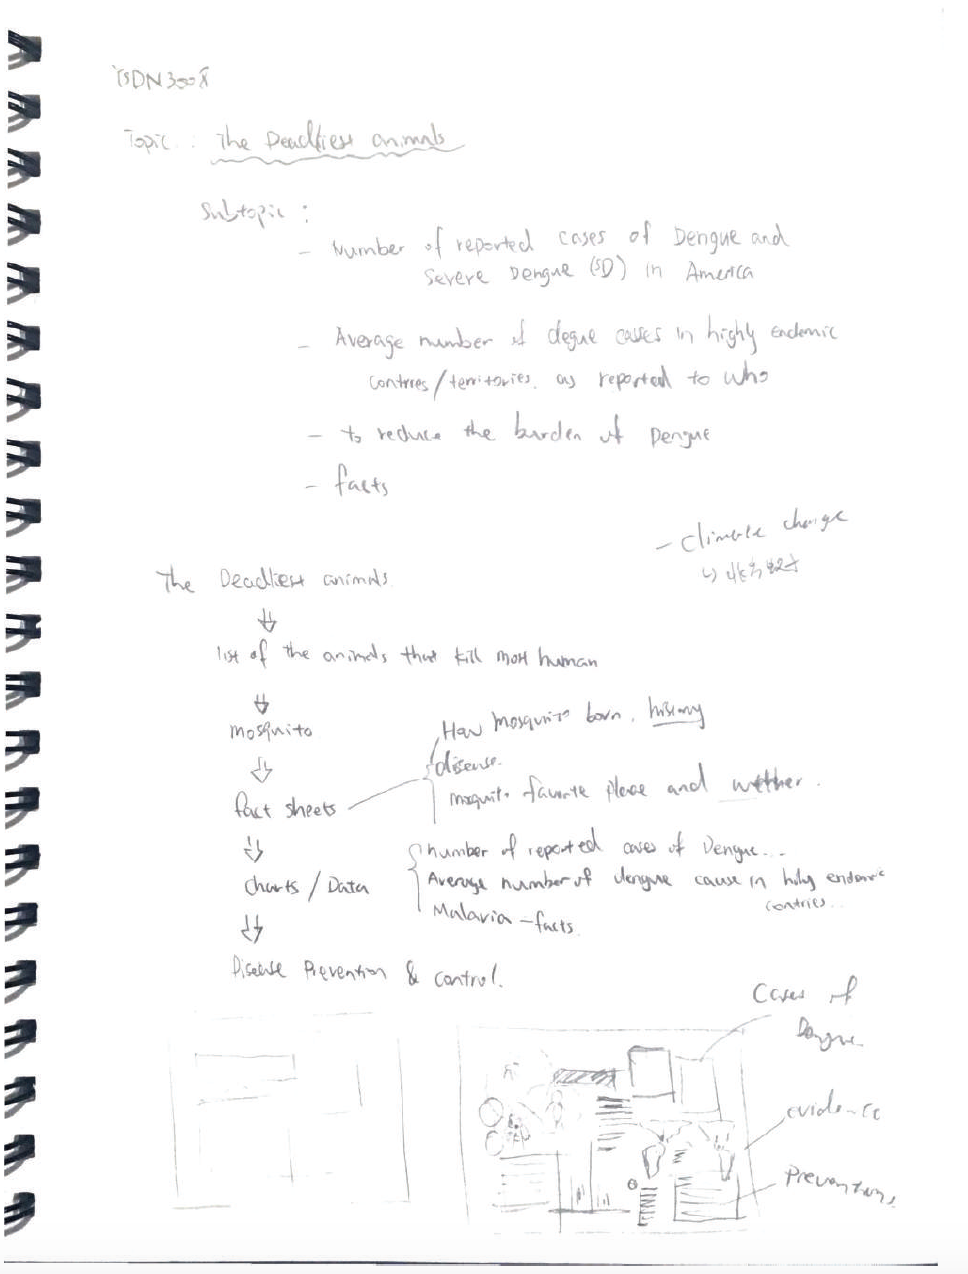 Topic : The Deadliest animals
Subtopic :
- Number of reported cases of Dengue and
Severe Dengue (SD) in America
- Average number of degue cases in highly endemic
contries/territories. as reported to who
- to reduce the burden of Dengue
- facts
- Climate change
The Deadliest animals
list of the animals that kill most human
mosquito
How mosquito born. history
disease.
fact sheets
mosquito favorite place and wether.
number of reported cases of Dengue...
charts / Data
Average number of dengue cause in holy endemic
contries..
Malavia - facts
Disease Prevention & control.
Cases of
Dengue
evidence
Preventions